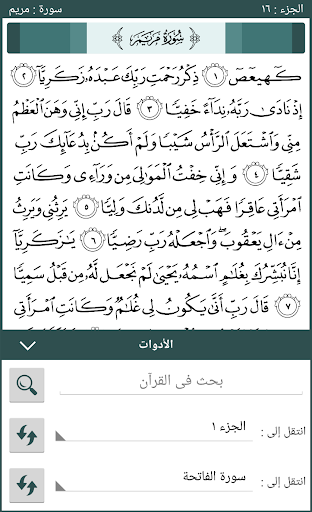 سورة : مريم الجزء : ١٦
سُورَةُ مَرْيَمَ
كٓهيعٓصٓ ١ ذِكْرُ رَحْمَتِ رَبِّكَ عَبْدَهُۥ زَكَرِيَّآ ٢
إِذْ نَادَىٰ رَبَّهُۥ نِدَآءً خَفِيًّا ٣ قَالَ رَبِّ إِنِّى وَهَنَ ٱلْعَظْمُ
مِنِّى وَٱشْتَعَلَ ٱلرَّأْسُ شَيْبًا وَلَمْ أَكُنۢ بِدُعَآئِكَ رَبِّ
شَقِيًّا ٤ وَإِنِّى خِفْتُ ٱلْمَوَٰلِىَ مِن وَرَآءِى وَكَانَتِ
ٱمْرَأَتِى عَاقِرًا فَهَبْ لِى مِن لَّدُنكَ وَلِيًّا ٥ يَرِثُنِى وَيَرِثُ
مِنْ ءَالِ يَعْقُوبَ ۖ وَٱجْعَلْهُ رَبِّ رَضِيًّا ٦ يَٰزَكَرِيَّآ
إِنَّا نُبَشِّرُكَ بِغُلَٰمٍ ٱسْمُهُۥ يَحْيَىٰ لَمْ نَجْعَل لَّهُۥ مِن قَبْلُ سَمِيًّا
٧ قَالَ رَبِّ أَنَّىٰ يَكُونُ لِى غُلَٰمٌ وَكَانَتِ ٱمْرَأَتِى
الأدوات
بحث فى القرآن
انتقل إلى : الجزء ١
انتقل إلى : سورة الفاتحة